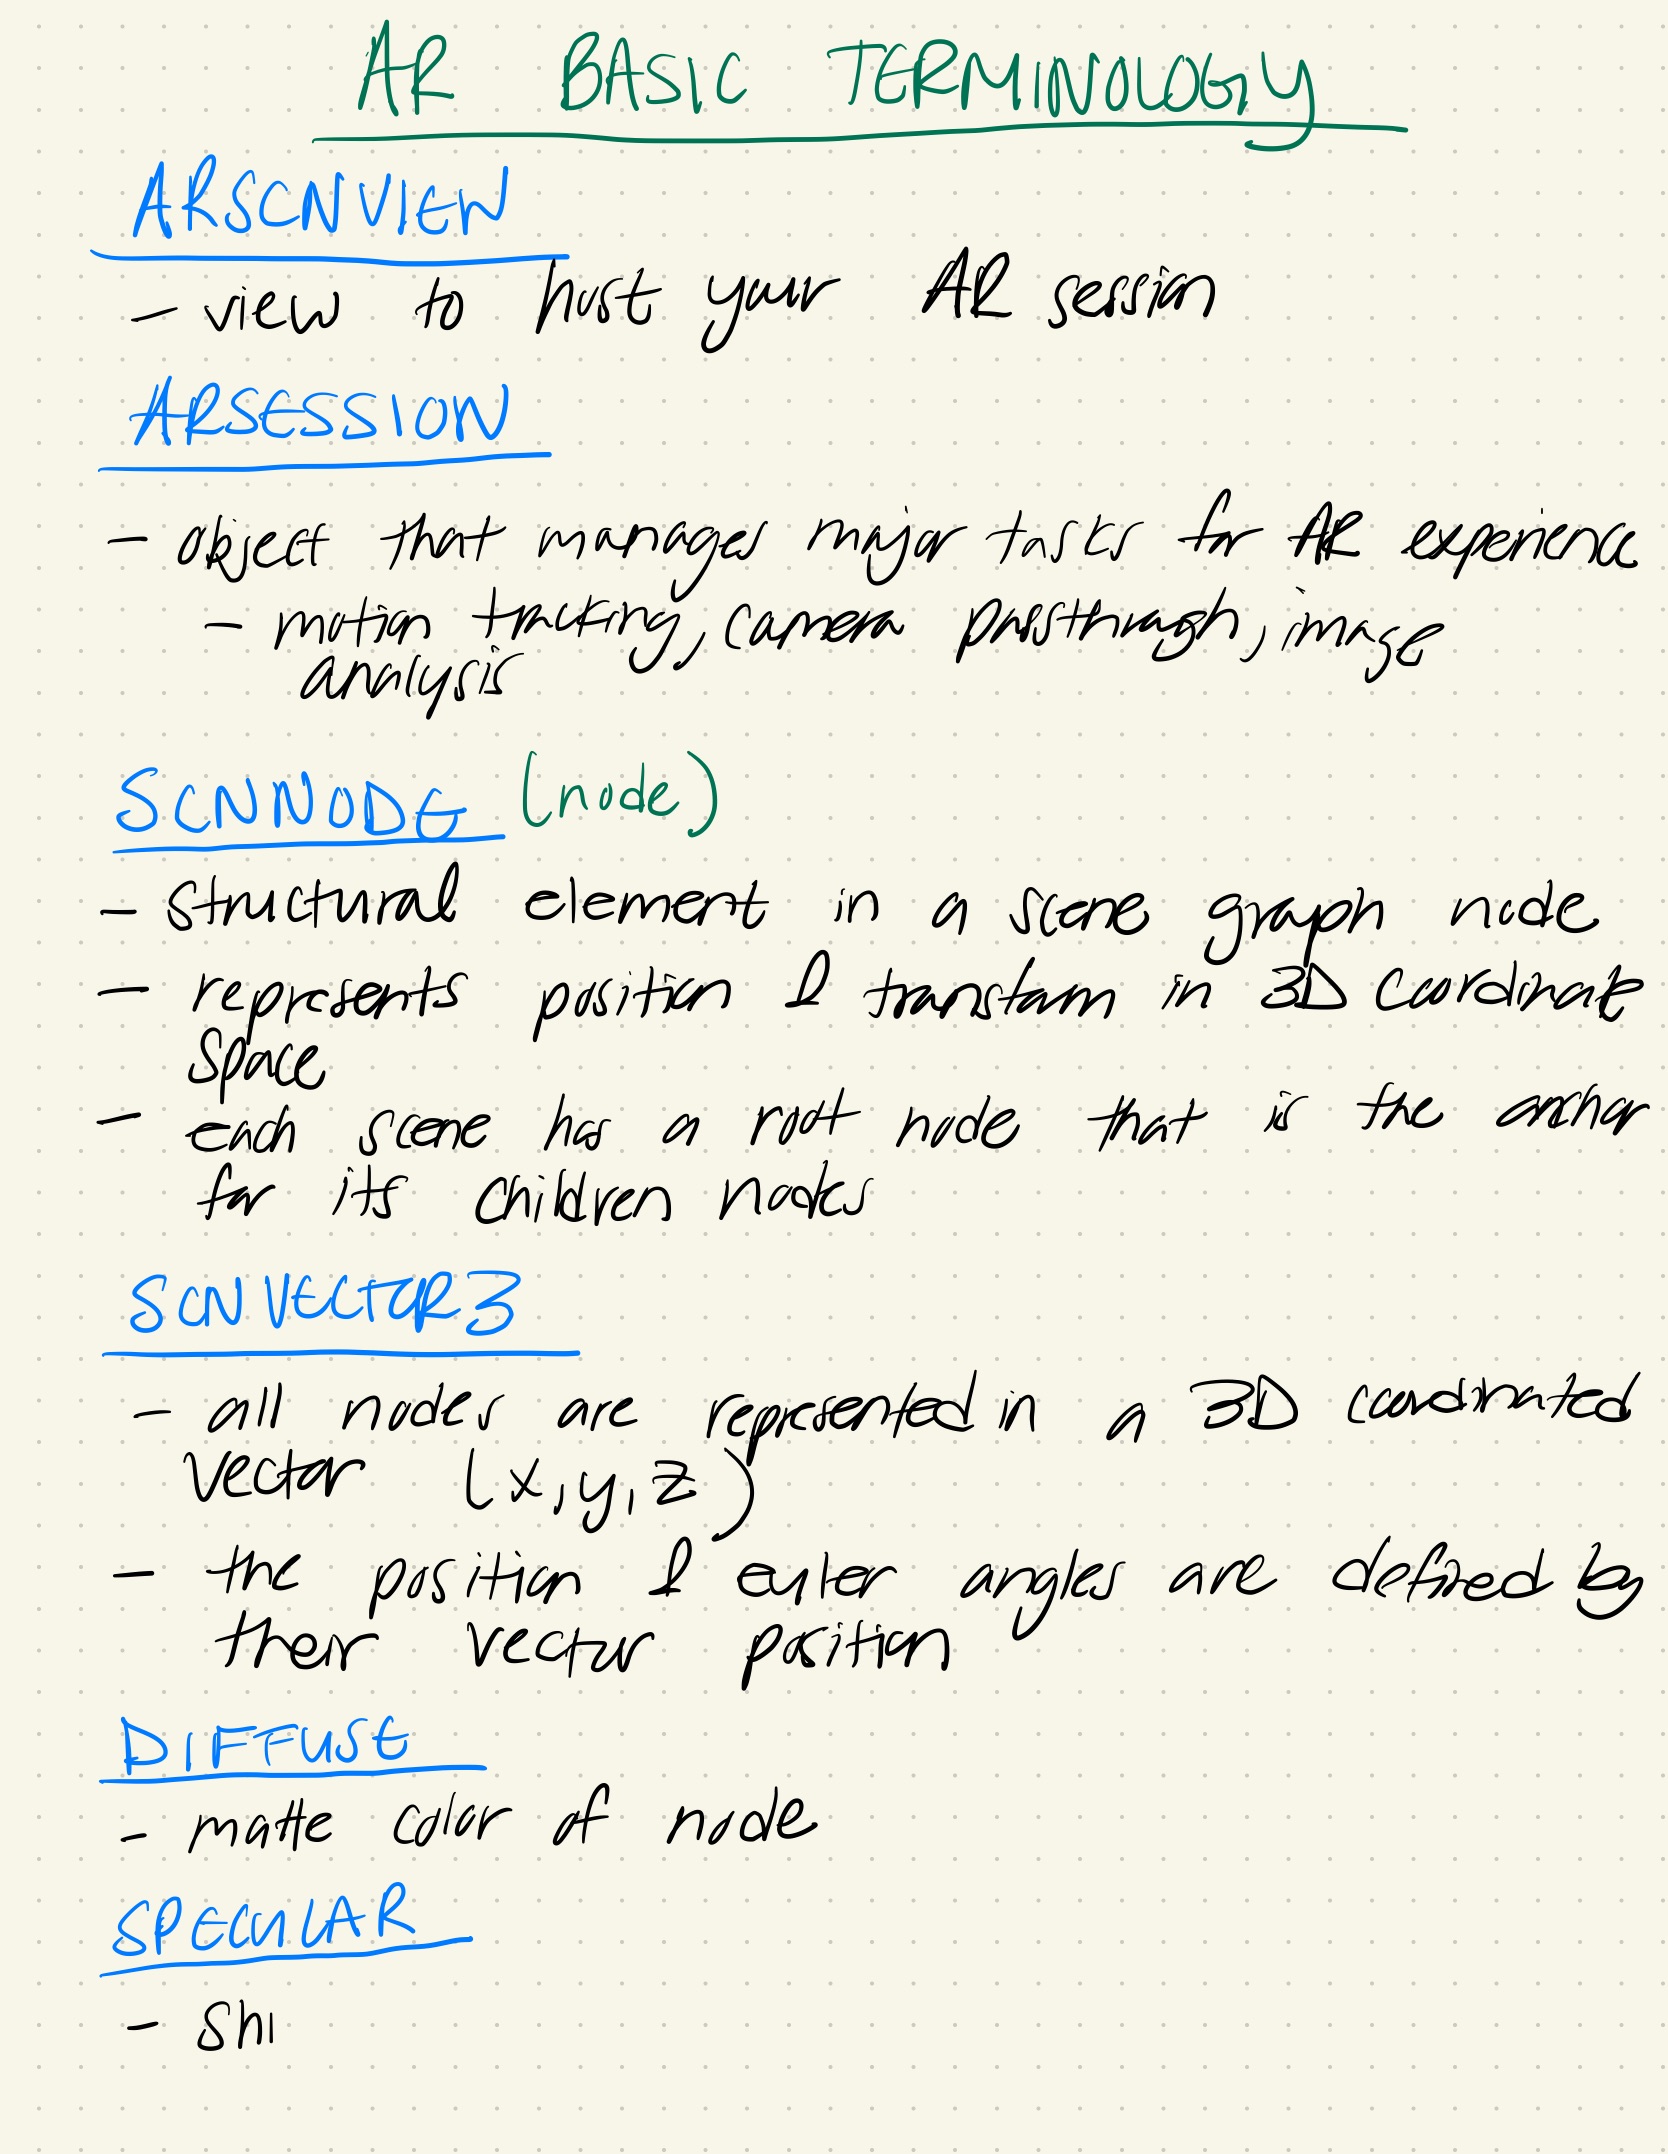 AR BASIC TERMINOLOGY
ARSCNVIEW
- view to host your AR session
ARSESSION
- object that manages major tasks for AR experience
- motion tracking, camera passthrough, image
analysis
SCNNODE (node)
- structural element in a scene graph node
- represents position & transform in 3D coordinate
space
- each scene has a root node that is the anchor
for its children nodes
SCNVECTOR3
- all nodes are represented in a 3D coordinated
vector (x, y, z)
- the position & euler angles are defined by
their vector position
DIFFUSE
- matte color of node
SPECULAR
- shi